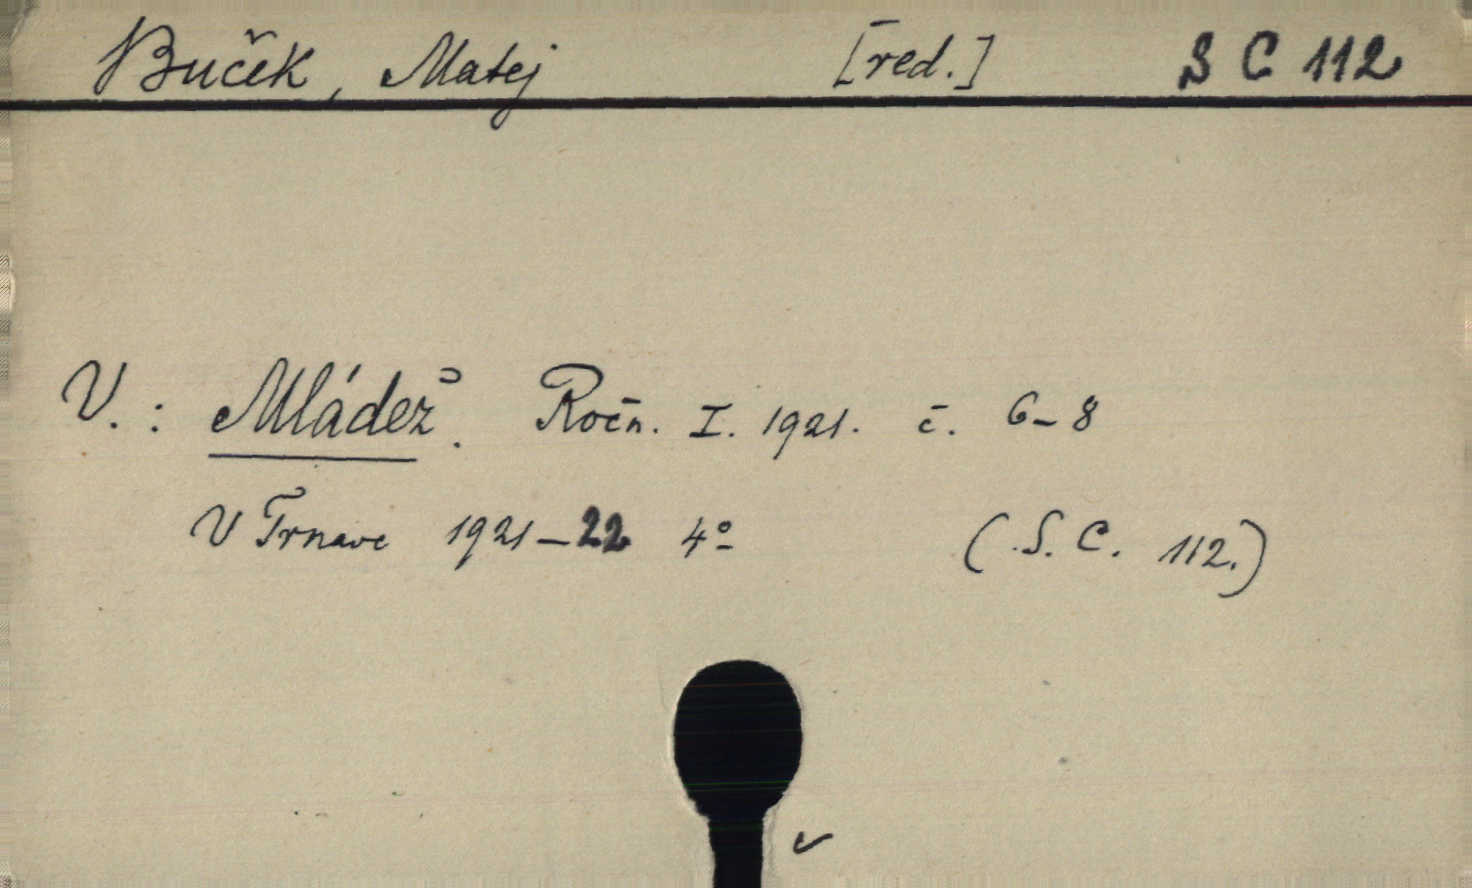 Buček, Matej [red.] S C 112
V.: Mládež. Ročn. I. 1921. č. 6-8
V Trnave 1921-22 4º (S. C. 112.)